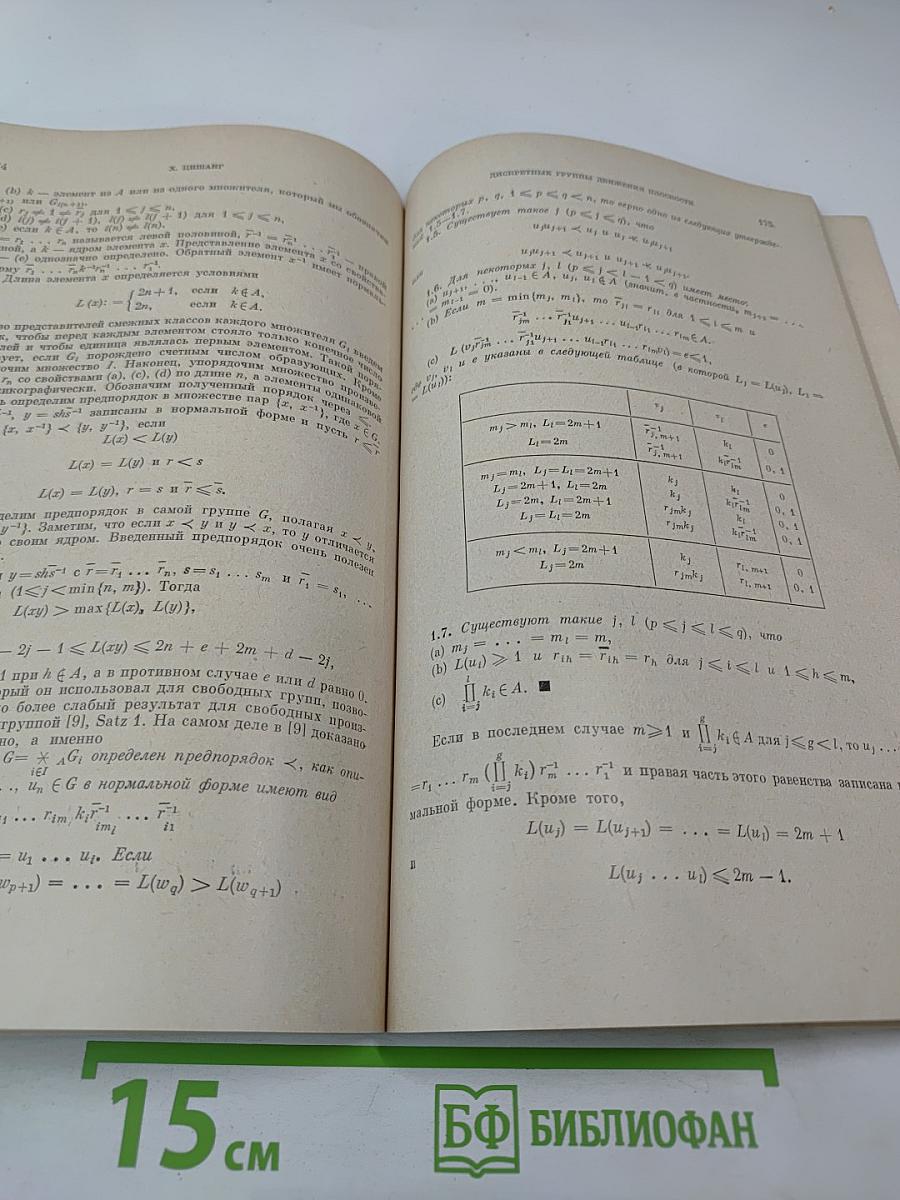 Х. ЦИШАНГ
(b) k — элемент из A или из одного множителя, который мы обозначим
или
(c) r_j ≠ 1 ≠ r̄_j для 1 ⩽ j ⩽ n,
(d) l(j) ≠ l(j + 1), l̄(j) ≠ l̄(j + 1) для 1 ⩽ j ⩽ n,
(e) если k ∉ A, то
= r_1 ... r_n называется левой половиной,
а k — ядром элемента x. Представление элемента x со свойствами
— (e) однозначно определено. Обратный элемент x^{-1} имеет
Длина элемента x определяется условиями
L(x): = { 2n+1, если k ∉ A,
2n, если k ∈ A.
представителей смежных классов каждого множителя G_i введем
чтобы перед каждым элементом стояло только конечное число
и чтобы единица являлась первым элементом. Такой
если G_i порождено счетным числом образующих. Кроме
множество I. Наконец, упорядочим множество
r_n со свойствами (a), (c), (d) по длине n, а элементы одинаковой
Обозначим полученный порядок через ⩽.
определим предпорядок в множестве пар {x, x^{-1}}, где x ∈ G.
y = shs̄^{-1} записаны в нормальной форме и пусть r ⩽ r̄
{x, x^{-1}} ≺ {y, y^{-1}}, если
L(x) < L(y)
L(x) = L(y) и r < s
L(x) = L(y), r = s и r̄ ⩽ s̄.
предпорядок в самой группе G, полагая x ≺ y,
y^{-1}}. Заметим, что если x ≺ y и y ≺ x, то y отличается
своим ядром. Введенный предпорядок очень полезен
y = shs̄^{-1} с r̄ = r̄_1 ... r̄_n, s = s_1 ... s_m и r̄_1 = s_1, ...
(1 ⩽ j < min{n, m}). Тогда
L(xy) > max{L(x), L(y)},
— 2j — 1 ⩽ L(xy) ⩽ 2n + e + 2m + d — 2j,
1 при h ∉ A, а в противном случае e или d равно 0.
он использовал для свободных групп,
более слабый результат для свободных
группой [9], Satz 1. На самом деле в [9] доказано
а именно
G = ∗_{i∈I} _A G_i определен предпорядок ≺, как
..., u_n ∈ G в нормальной форме имеют вид
... r_{im_i} k_i r̄_{im_i}^{-1} ... r̄_{i1}^{-1}
= u_1 ... u_i. Если
w_{p+1}) = ... = L(w_q) > L(w_{q+1})
ДИСКРЕТНЫЕ ГРУППЫ ДВИЖЕНИЯ ПЛОСКОСТИ
для некоторых p, q, 1 ⩽ p ⩽ q < n, то верно одно из следующих
1.5—1.7.
1.5. Существует такое j (p ⩽ j ⩽ q), что
u_j u_{j+1} ≺ u_j и u_j ≮ u_j u_{j+1}
или
u_j u_{j+1} ≺ u_{j+1} и u_{j+1} ≮ u_j u_{j+1}.
1.6. Для некоторых j, l (p ⩽ j < l — 1 < q) имеет место:
(a) u_{j+1}, ..., u_{l-1} ∈ A, u_j, u_l ∉ A (значит, в частности, m_{j+1} = ...
... = m_{l-1} = 0).
(b) Если m = min{m_j, m_l}, то r̄_{ji} = r_{li} для 1 ⩽ i ⩽ m и
r̄_{jm}^{-1} ... r̄_{j1}^{-1} u_{j+1} ... u_{l-1} r_{l1} ... r_{lm} ∈ A.
(c) L(v_j r̄_{jm}^{-1} ... r̄_{j1}^{-1} u_{j+1} ... u_{l-1} r_{l1} ... r_{lm} v_l) = e ⩽ 1,
где v_j, v_l и e указаны в следующей таблице (в которой L_j = L(u_j), L_l =
= L(u_l)):
v_j v_l e
m_j > m_l, L_l = 2m+1 r̄_{j,m+1}^{-1} k_l 0
L_l = 2m r̄_{j,m+1}^{-1} k_l r̄_{lm}^{-1} 0, 1
m_j = m_l, L_j = L_l = 2m+1 k_j k_l 0
L_j = 2m+1, L_l = 2m k_j k_l r̄_{lm}^{-1} 0, 1
L_j = 2m, L_l = 2m+1 r_{jm} k_j k_l 0, 1
L_j = L_l = 2m r_{jm} k_j k_l r̄_{lm}^{-1} 0, 1
m_j < m_l, L_j = 2m+1 k_j r_{l,m+1} 0
L_j = 2m r_{jm} k_j r_{l,m+1} 0, 1
1.7. Существуют такие j, l (p ⩽ j ⩽ l ⩽ q), что
(a) m_j = ... = m_l = m,
(b) L(u_i) ⩾ 1 и r_{ih} = r̄_{ih} = r_h для j ⩽ i ⩽ l и 1 ⩽ h ⩽ m,
(c) ∏_{i=j}^{l} k_i ∈ A. ■
Если в последнем случае m ⩾ 1 и ∏_{i=j}^{g} k_i ∉ A для j ⩽ g < l, то u_j ...
= r_1 ... r_m (∏_{i=j}^{g} k_i) r_m^{-1} ... r_1^{-1} и правая часть этого равенства записана
мальной форме. Кроме того,
L(u_j) = L(u_{j+1}) = ... = L(u_l) = 2m + 1
и
L(u_j ... u_l) ⩽ 2m — 1.
15 см
БФ БИБЛИОФАН